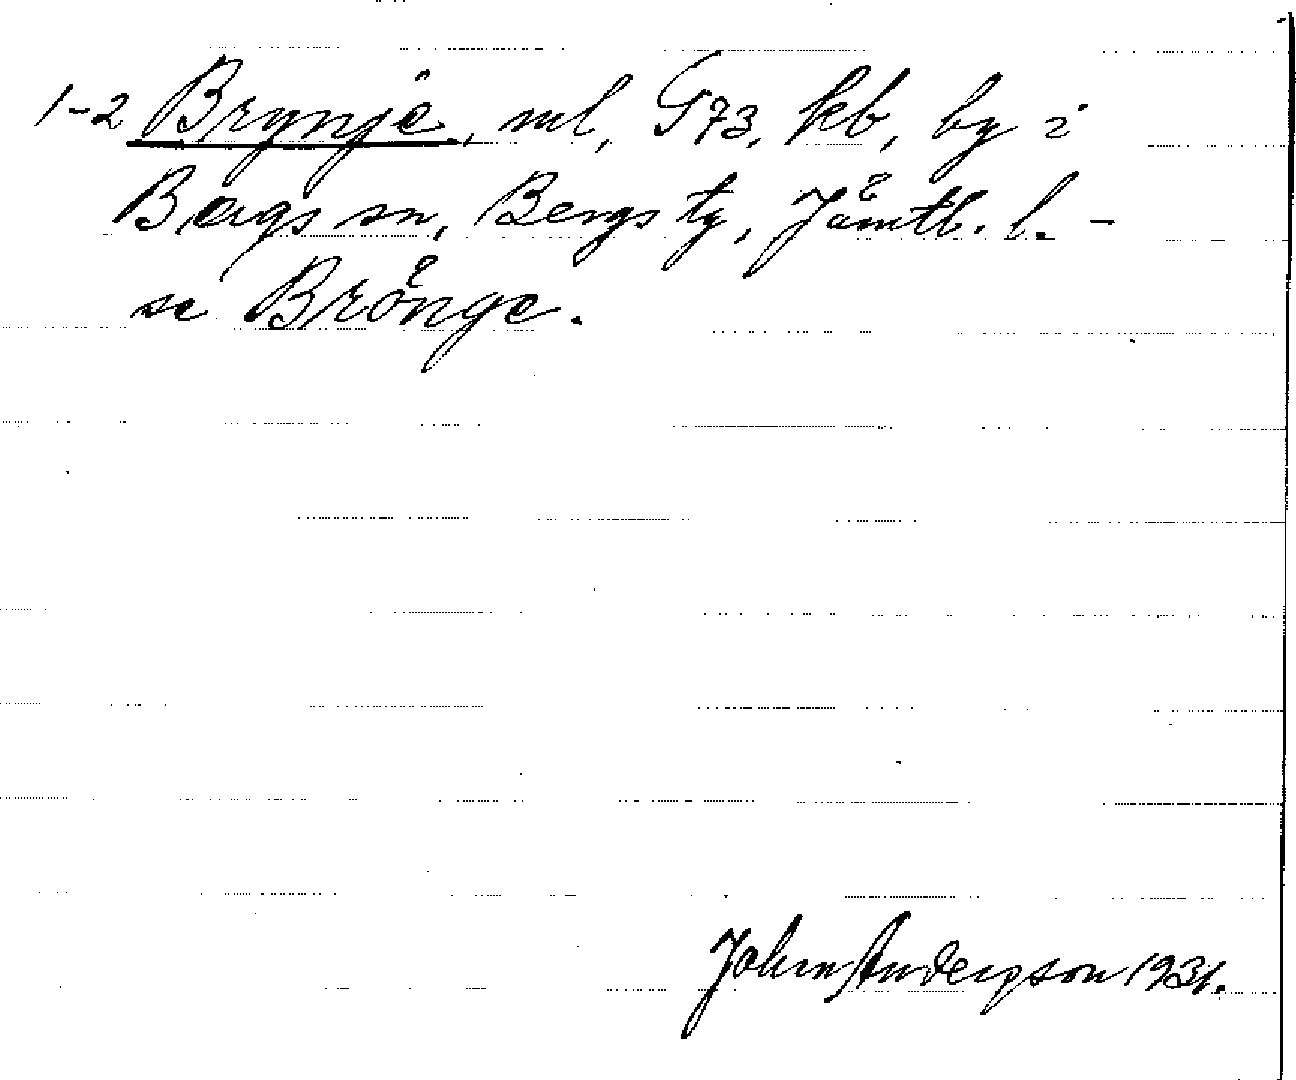 1-2 Brynje, ml, G73, kb, by i
Bergs sn, Bergs tg, Jämtl. l. -
se Brönge.
John Anderson 1931.